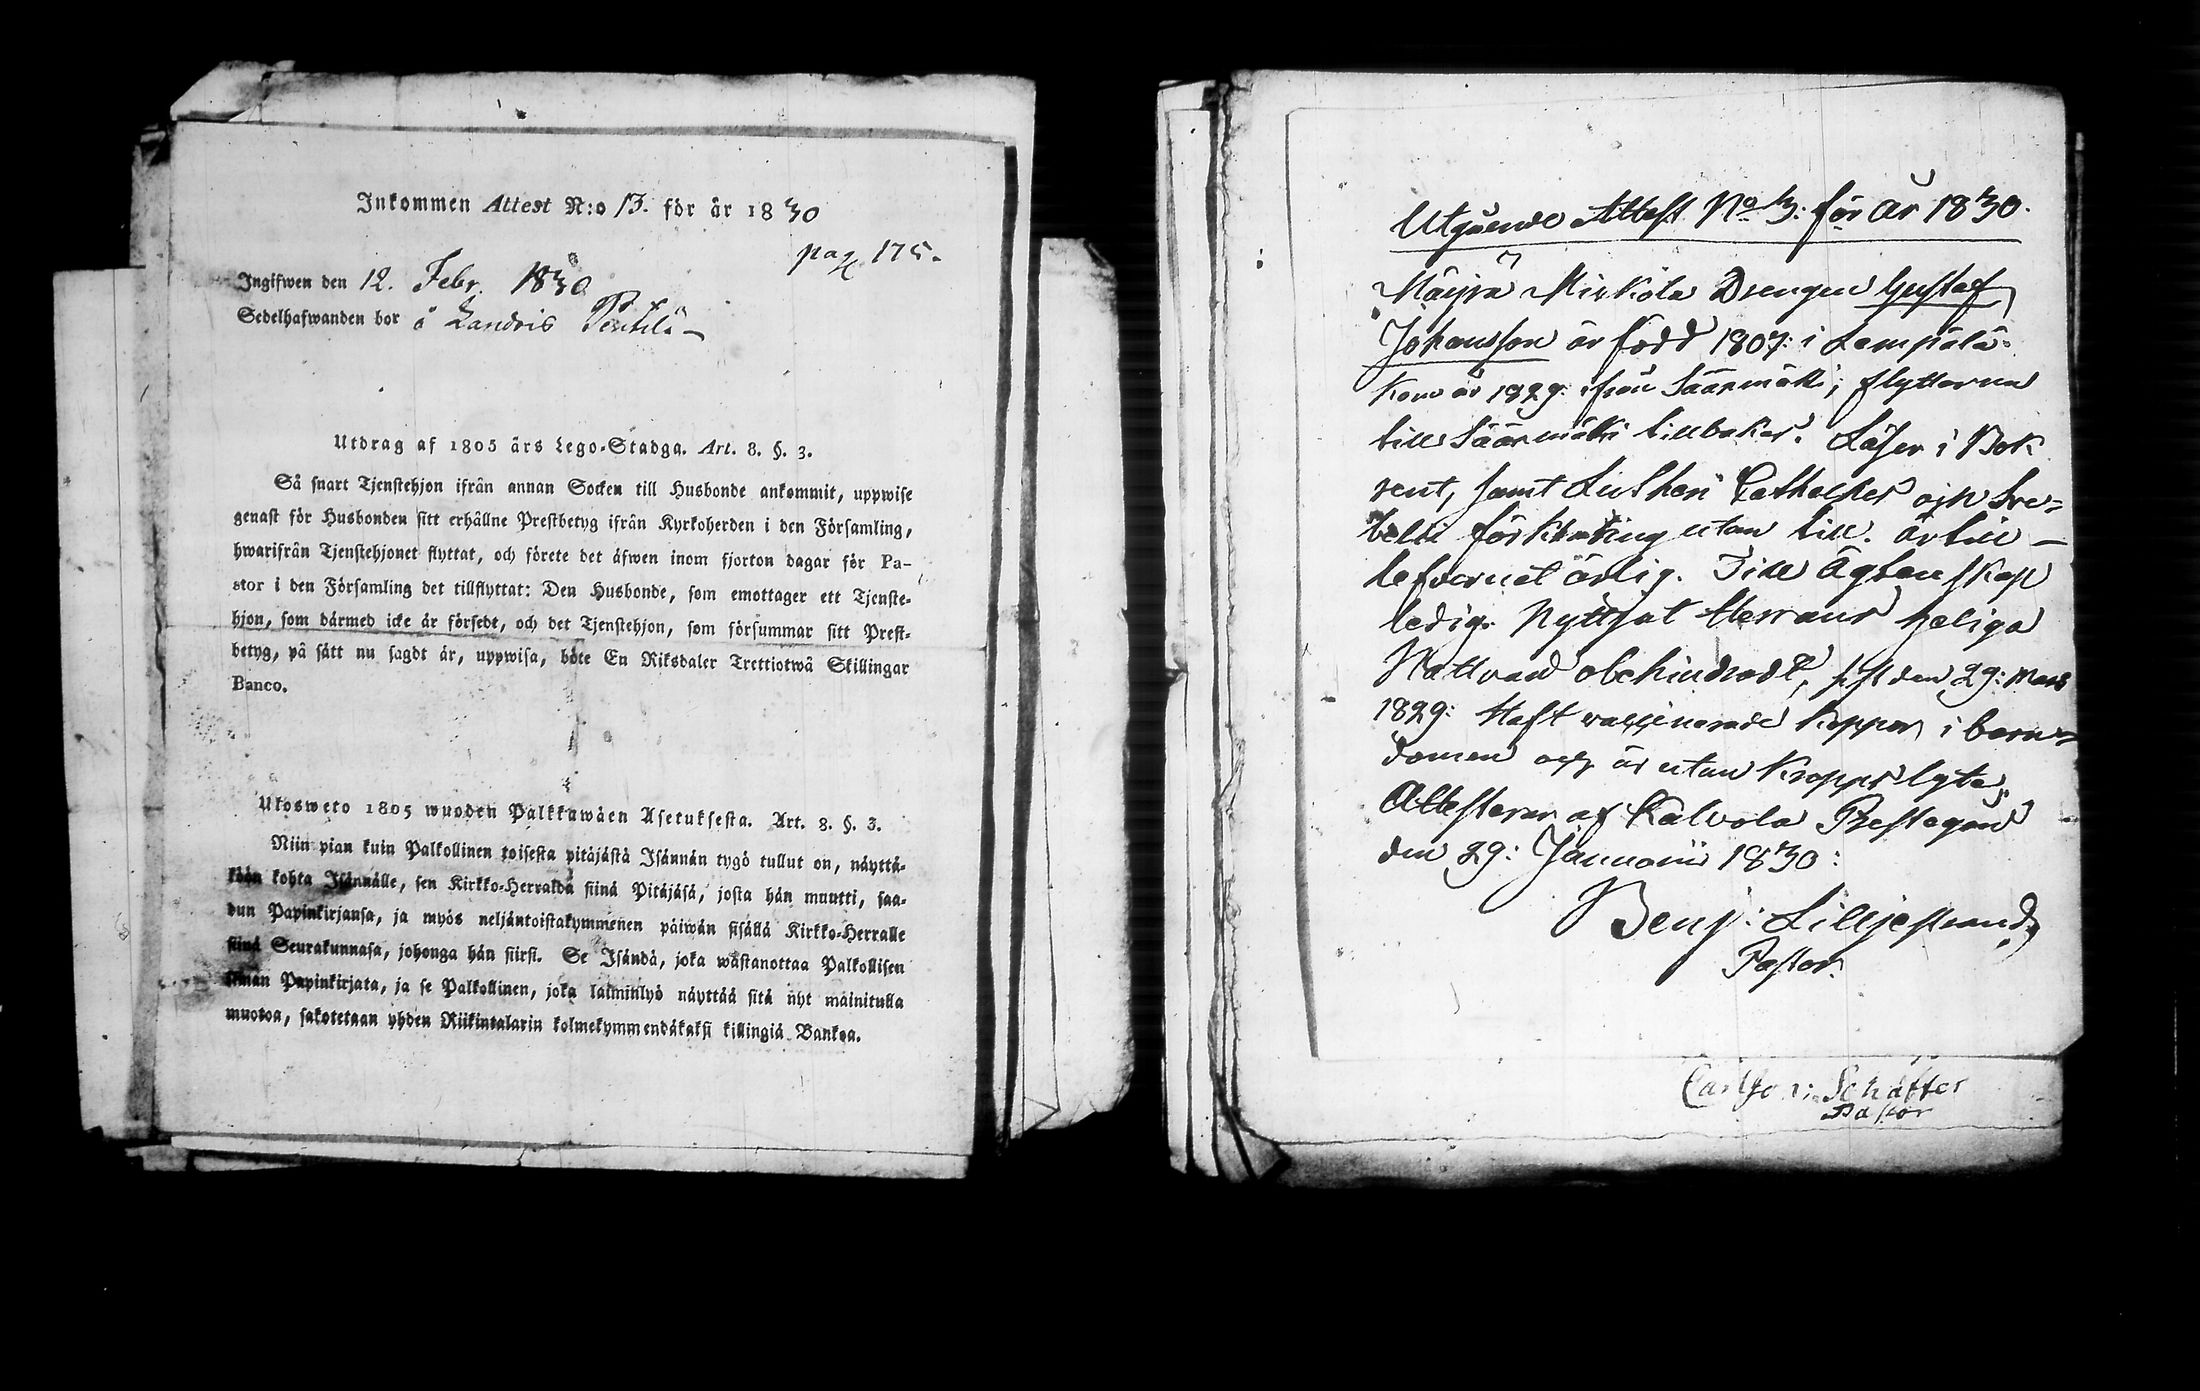 Inkommen Attest N:o 13. för år 1830
pag. 175.
Ingifwen den 12. Febr. 1830
Sedelhafwanden bor å Landris Penttilä
Utdrag af 1805 års Lego-Stadga. Art. 8. §. 3.
Så snart Tjenstehjon ifrån annan Socken till Husbonde ankommit, uppwise
genast för Husbonden sitt erhållne Prestbetyg ifrån Kyrkoherden i den Församling,
hwarifrån Tjenstehjonet flyttat, och förete det äfwen inom fjorton dagar för Pa-
stor i den Församling det tillflyttat: Den Husbonde, som emottager ett Tjenste-
hjon, som därmed icke är försedt, och det Tjenstehjon, som försummar sitt Prest-
betyg, på sätt nu sagdt är, uppwisa, böte En Riksdaler Trettiotwå Skillingar
Banco.
Ulosweto 1805 wuoden Palkkawäen Asetuksesta. Art. 8. §. 3.
Niin pian kuin Palkollinen toisesta pitäjästä Isännän tygö tullut on, näyttä-
köön kohta Isännälle, sen Kirkko-Herralda siinä Pitäjäsä, josta hän muutti, saa-
dun Papinkirjansa, ja myös neljäntoistakymmenen päiwän sisällä Kirkko-Herralle
siinä Seurakunnasa, johonga hän siirsi. Se Isändä, joka wastanottaa Palkollisen
ilman Papinkirjata, ja se Palkollinen, joka laiminlyö näyttää sitä nyt mainitulla
muotoa, sakotetaan yhden Riikintalarin kolmekymmendäkaksi killingiä Bankoa.
Utgående Attest No 3: för år 1830.
Mäyrä Mirkola Drengen Gustaf
Johansson är född 1807: i Lempälä
kom år 1829: ifrån Säärmäki; flyttar nu
till Säärmäki tillbaker. Läser i Bok
rent, samt Lutheri Cathecher och Sve=
belii förklaring utan till. är till
lefvernet ärlig. Till Ägtenskap
ledig. Nyttjat Herrans heliga
Nattvard obehindradt, sist den 29: Mars
1829: Haft vaccinerade koppor i barn=
domen och är utan kropps lyte,
Attesterar af Kalvola Prestegård
den 29: Januarii 1830:
Benj: Lilljestrand
Pastor.
Schäffer
Pastor